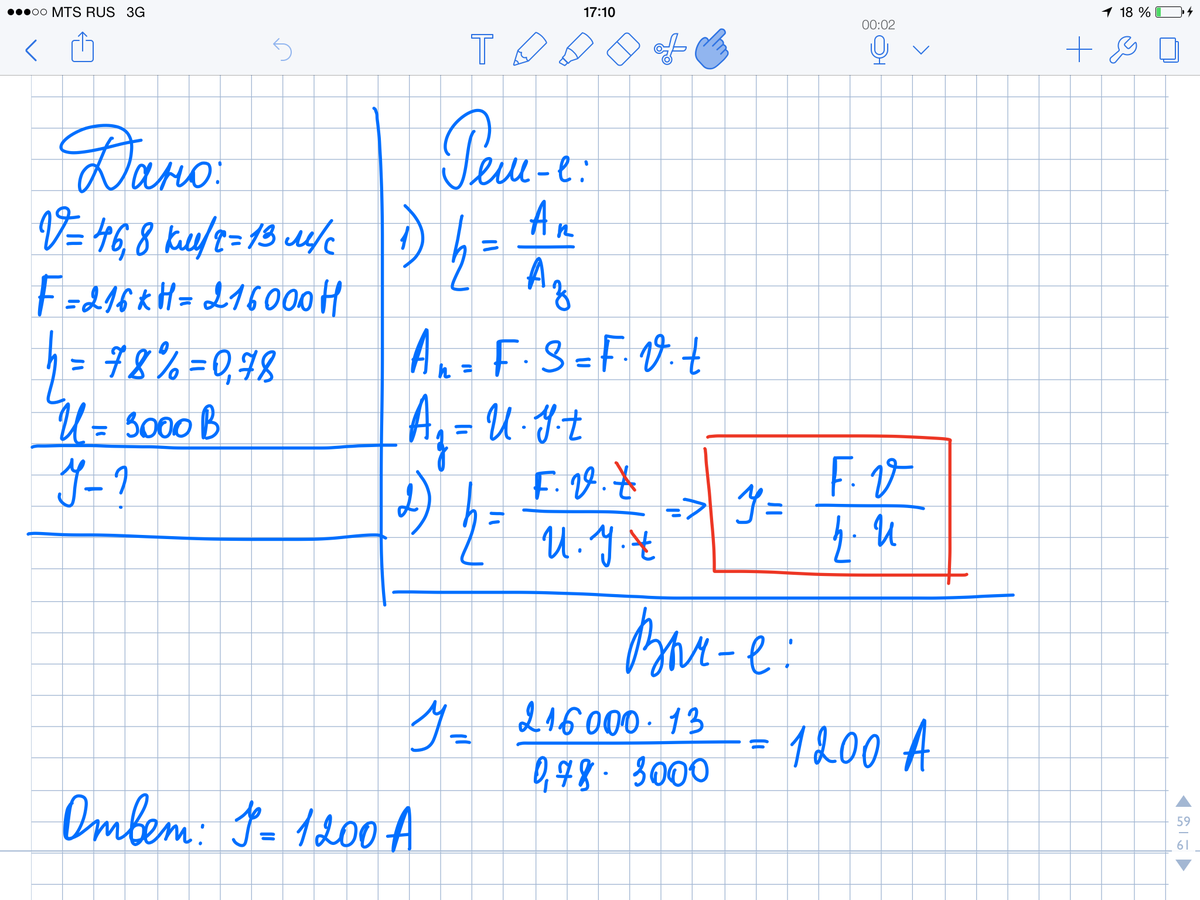 MTS RUS 3G 17:10 18 %
00:02
T
Дано:
V = 46,8 км/ч = 13 м/с
F = 216 кН = 216000 Н
η = 78% = 0,78
U = 3000 В
J - ?
Реш-е:
1) η = Aп / Aз
Aп = F · S = F · V · t
Aз = U · J · t
2) η = F · V · t / U · J · t => J = F · V / η · U
Выч-е:
J = 216000 · 13 / 0,78 · 3000 = 1200 A
Ответ: J = 1200 A
59
61